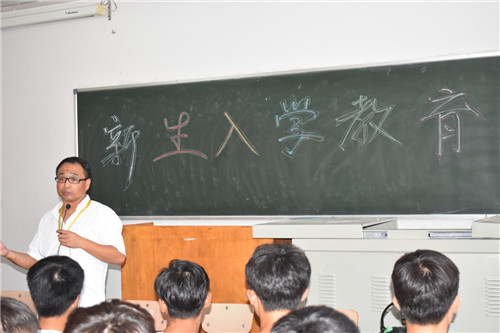 新生入学教育